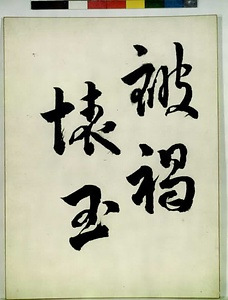 被褐
懐玉